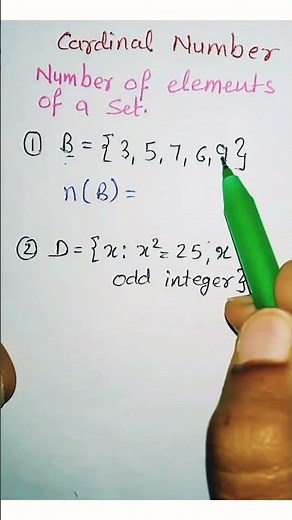 Cardinal Number
Number of elements
of a Set.
① B = {3, 5, 7, 6, 9}
n(B) =
② D = {x: x² = 25, x
odd integer}